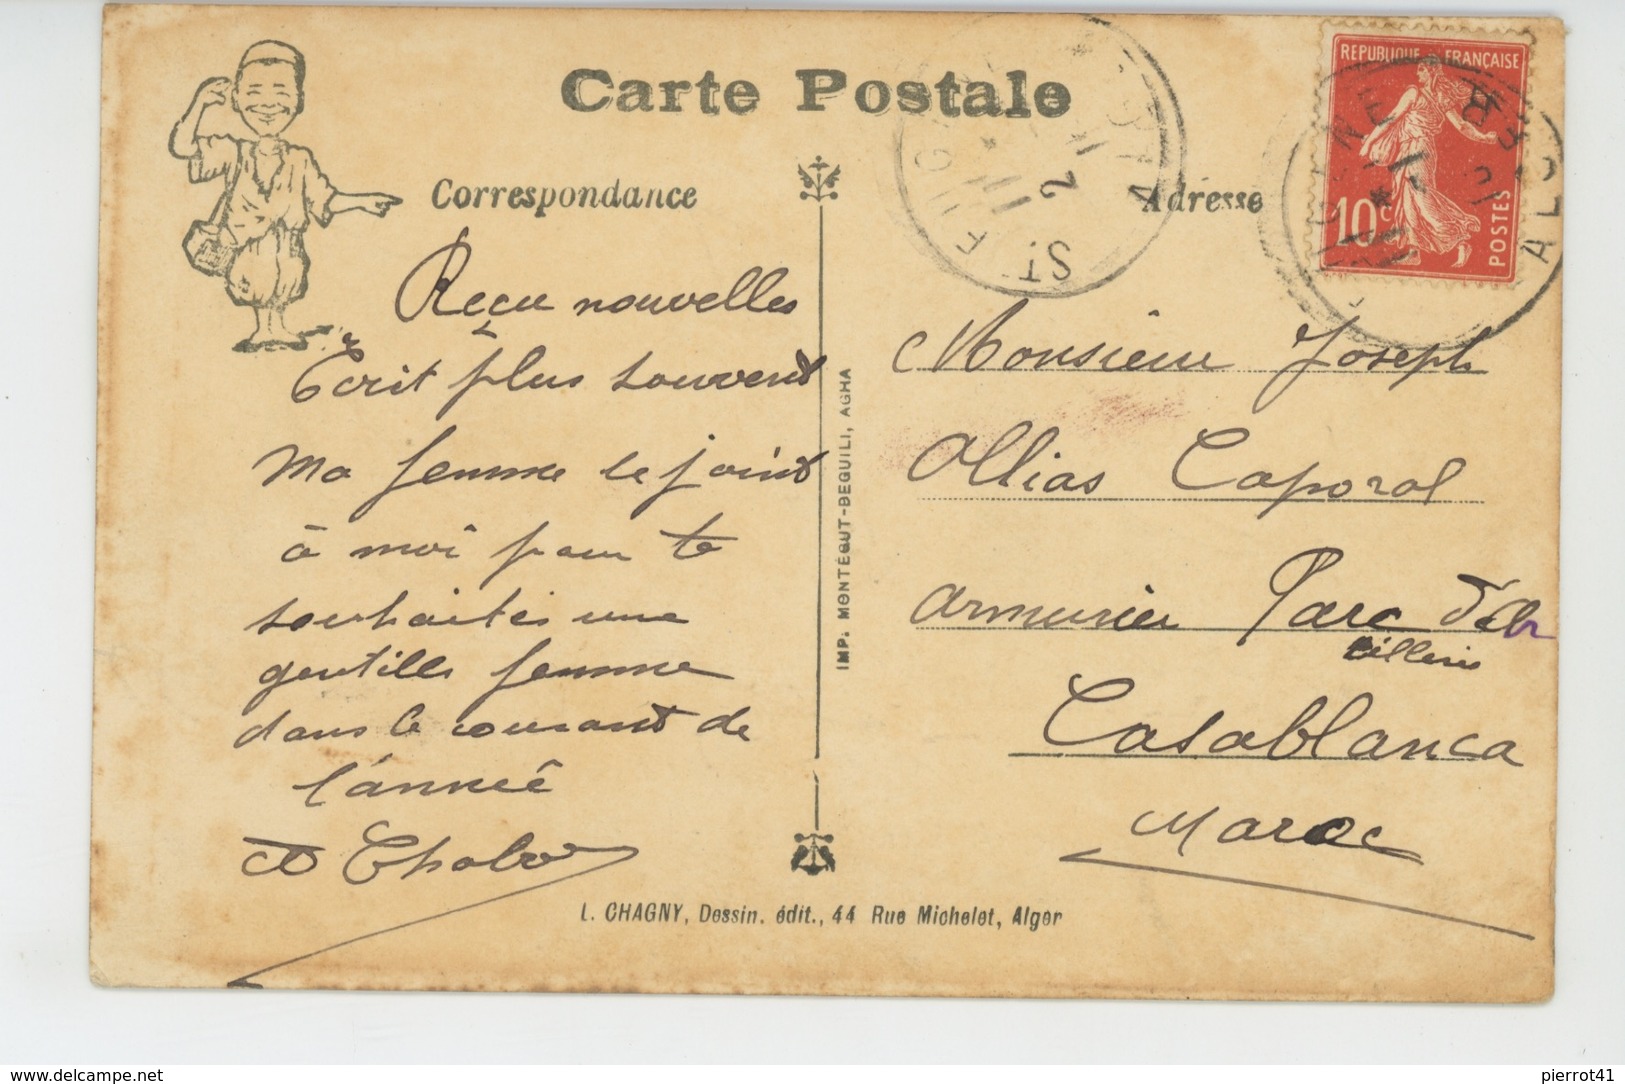 Carte Postale
Correspondance
Reçu nouvelles
Ecrit plus souvent
Ma femme se joint
à moi pour te
souhaiter une
gentille femme
dans le courant de
l'année
IMP. MONTÉGUT-DEGUILI, AGHA
L. CHAGNY, Dessin. édit., 44 Rue Michelet, Alger
Adresse
REPUBLIQUE FRANÇAISE
10c
POSTES
Monsieur Joseph
Allias Caporal
armurier Parc d'ar
tillerie
Casablanca
Maroc
pierrot41